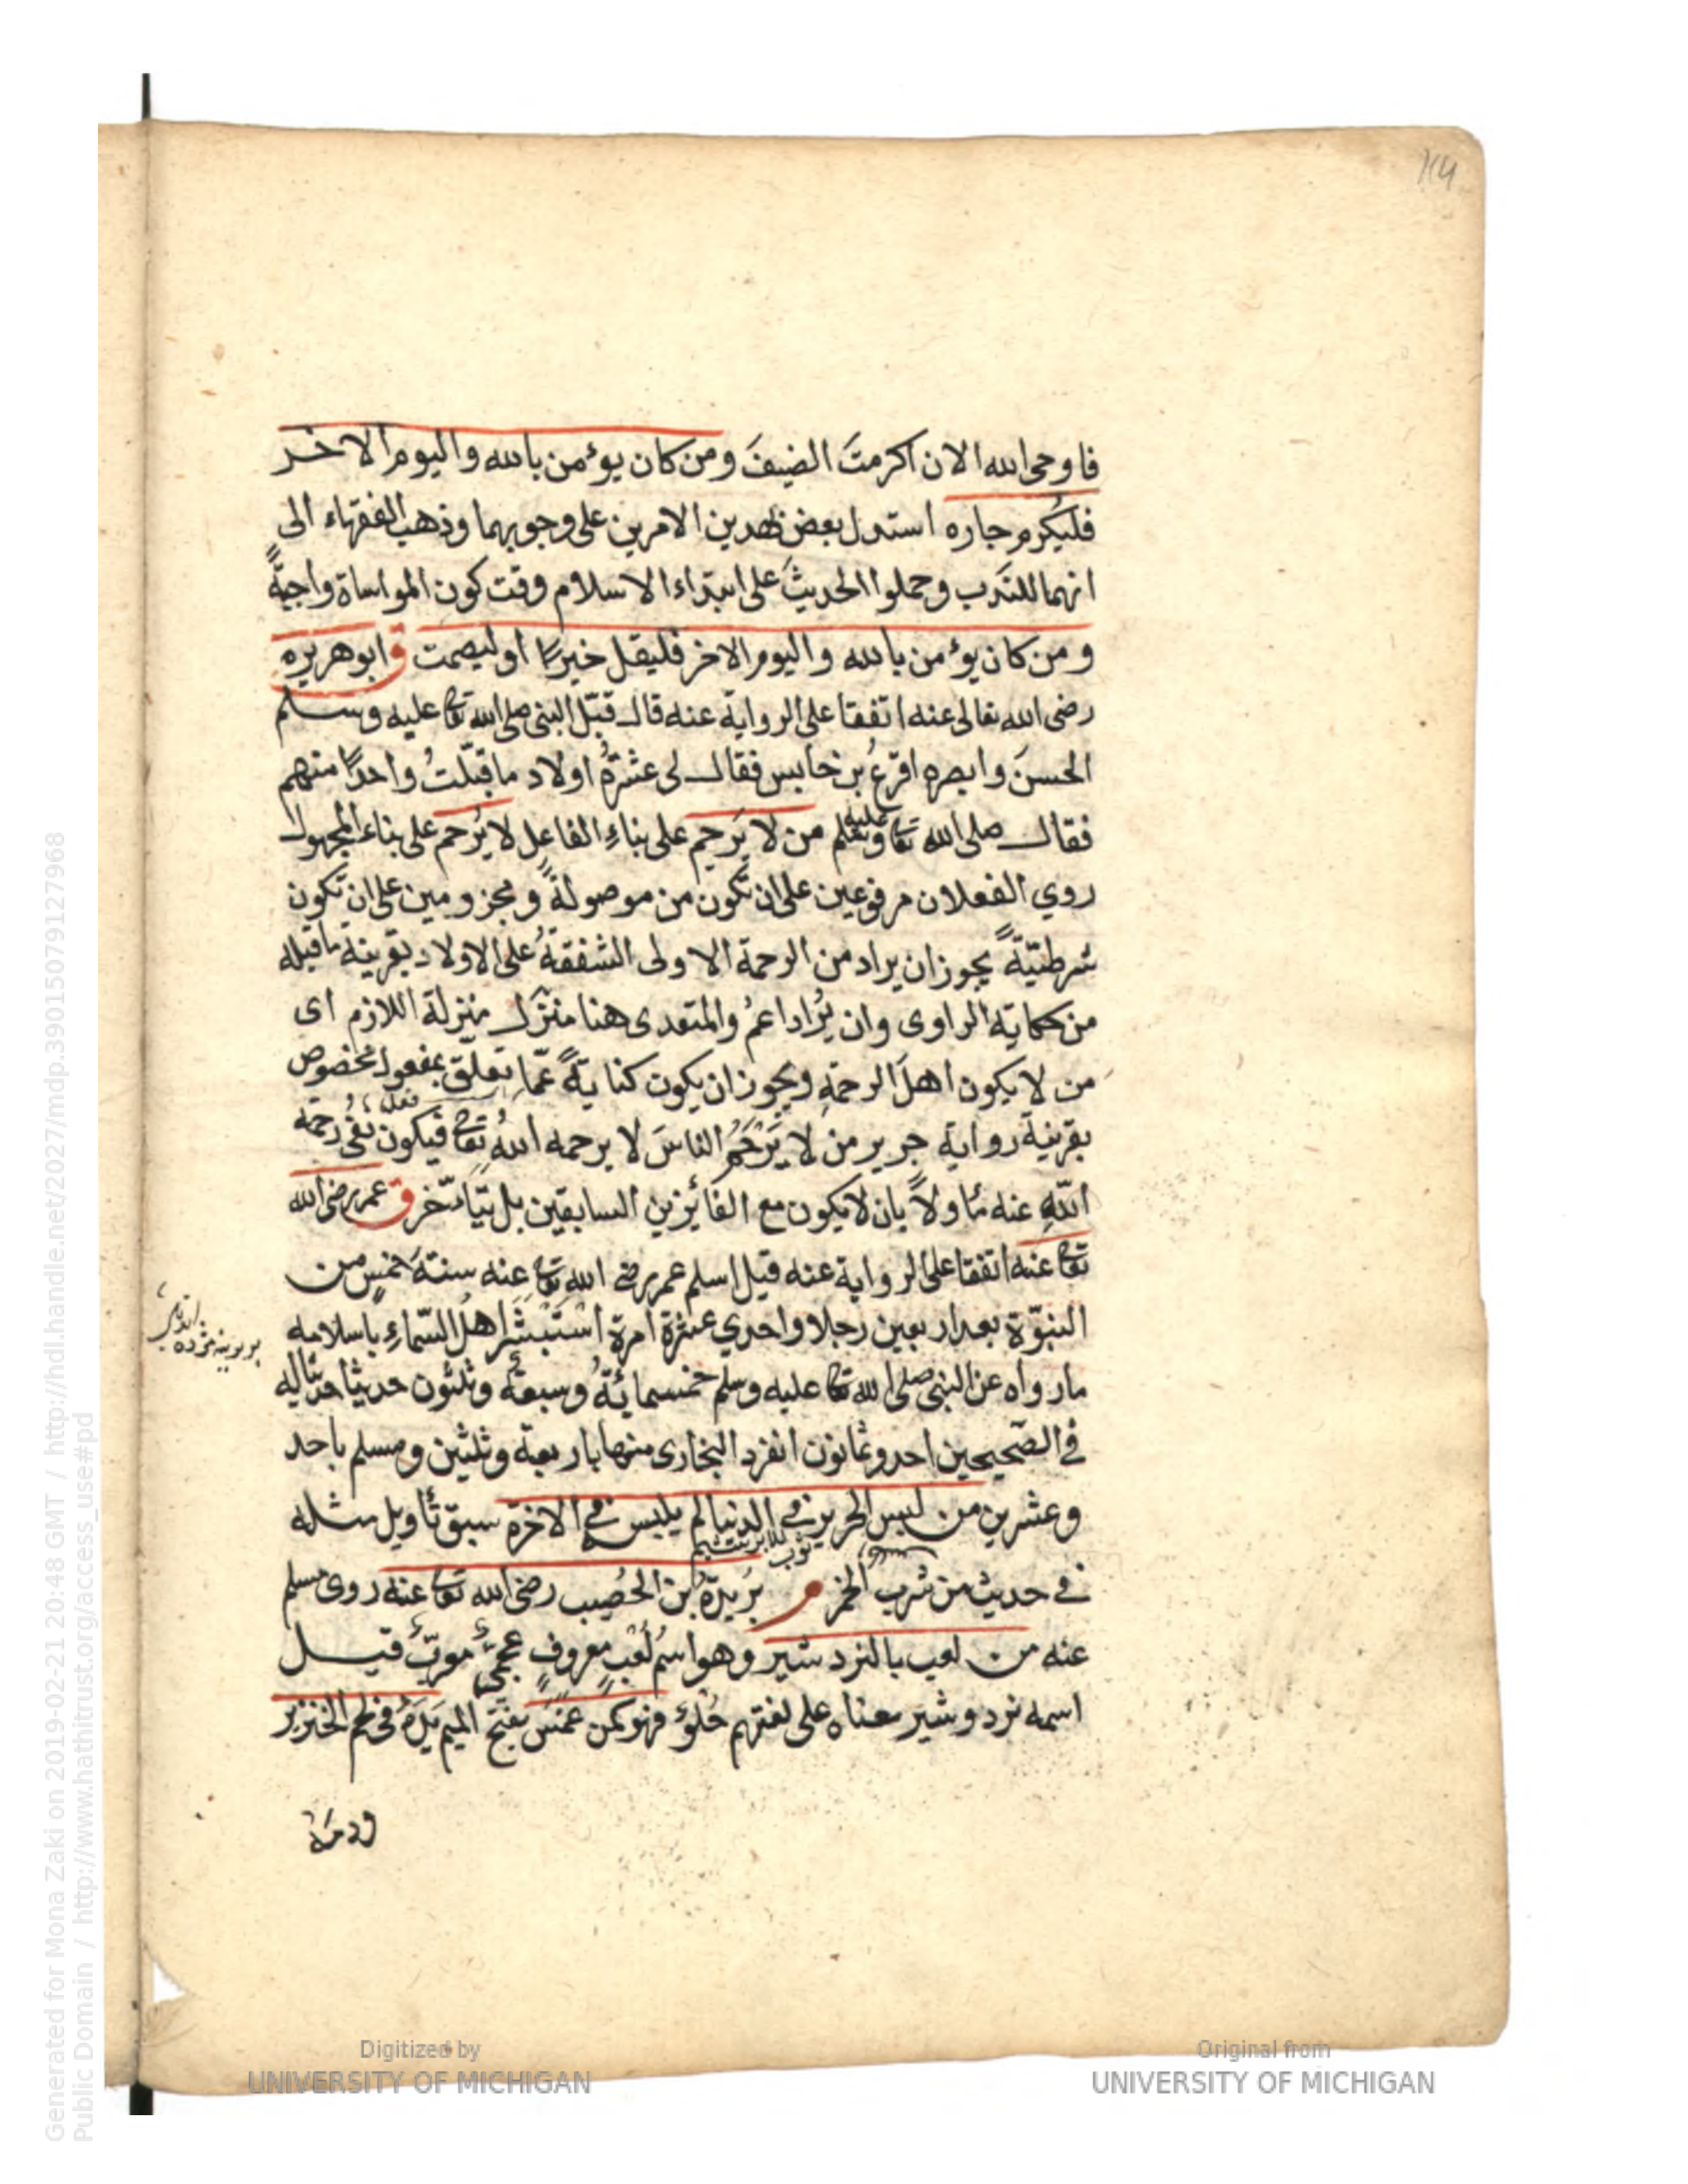 فاوحى الله الان اكرمتَ الضيفَ ومن كان يؤمن بالله واليوم الاخر
فليكرم جاره استدل بعض بهذين الامرين على وجوبهما وذهب الفقهاء الى
انهما للندب وحملوا الحديثَ على ابتداء الاسلام وقت كون المواساة واجبةً
ومن كان يؤمن بالله واليوم الاخر فليقل خيرًا او ليصمت ق ابو هريره
رضى الله تعالى عنه اتفقا على الرواية عنه قال قبّل النبى صلى الله تعا عليه وسلم
الحسنَ وابصره اقرعُ بن حابس فقال لى عشرةُ اولاد ما قبّلتُ واحدًا منهم
فقال صلى الله تعا عليه وسلم من لا يَرحم على بناءِ الفاعل لا يُرحم على بناء المجهول
روي الفعلان مرفوعين على ان تكون من موصولةً ومجزومين على ان تكون
شرطيّةً يجوز ان يراد من الرحمة الاولى الشفقةُ على الاولاد بقرينة ما قبله
من حكاية الراوى وان يُراد اعمُ والمتعدى هنا منزل منزلة اللازم اى
من لا يكون اهلَ الرحمةِ ويجوز ان يكون كنايةً عمّا تعلّق بمفعول مخصوص
بقرينة رواية جرير من لا يَرْحَمُ الناسَ لا يرحمه اللهُ تعا فيكون نفى رحمة
اللّهِ عنه مأولاً بان لا يكون مع الفائزين السابقين بل يتأخّر ق عمر رضى الله
تعا عنه اتفقا على الرواية عنه قيل اسلم عمر رضى الله تعا عنه سنةَ خمسٍ من
النبوّة بعد اربعين رجلا واحدي عشرة امرة استَبْشَرَ اهلُ السّماءِ باسلامه
ما رواه عن النبى صلى الله تعا عليه وسلم خمسمائةُ وسبعةُ وثلثون حديثا
فى الصّحيحين احد وثمانون انفرد البخارى منها باربعة وثلثين ومسلم باحد
وعشرين من لبس الحرير فى الدنيا لم يلبس فى الاخرة سبق تأويل مثله
فى حديث من شرب الخمر م بُريدةُ بن الحُصيب رضى الله تعا عنه روى مسلم
عنه من لعب بالنرد شير وهو اسمُ لُعبٍ معروفٍ عجمىٌّ معربٌ قيل
اسمه نرد وشير معناه على لغتهم حُلوٌ فهو كمن غمسَ بفتح الميم يَدَهُ فى لحم الخنزير
ودمه
Generated for Mona Zaki on 2019-02-21 20:48 GMT / http://hdl.handle.net/2027/mdp.39015079127968
Public Domain / http://www.hathitrust.org/access_use#pd
Digitized by
UNIVERSITY OF MICHIGAN
Original from
UNIVERSITY OF MICHIGAN